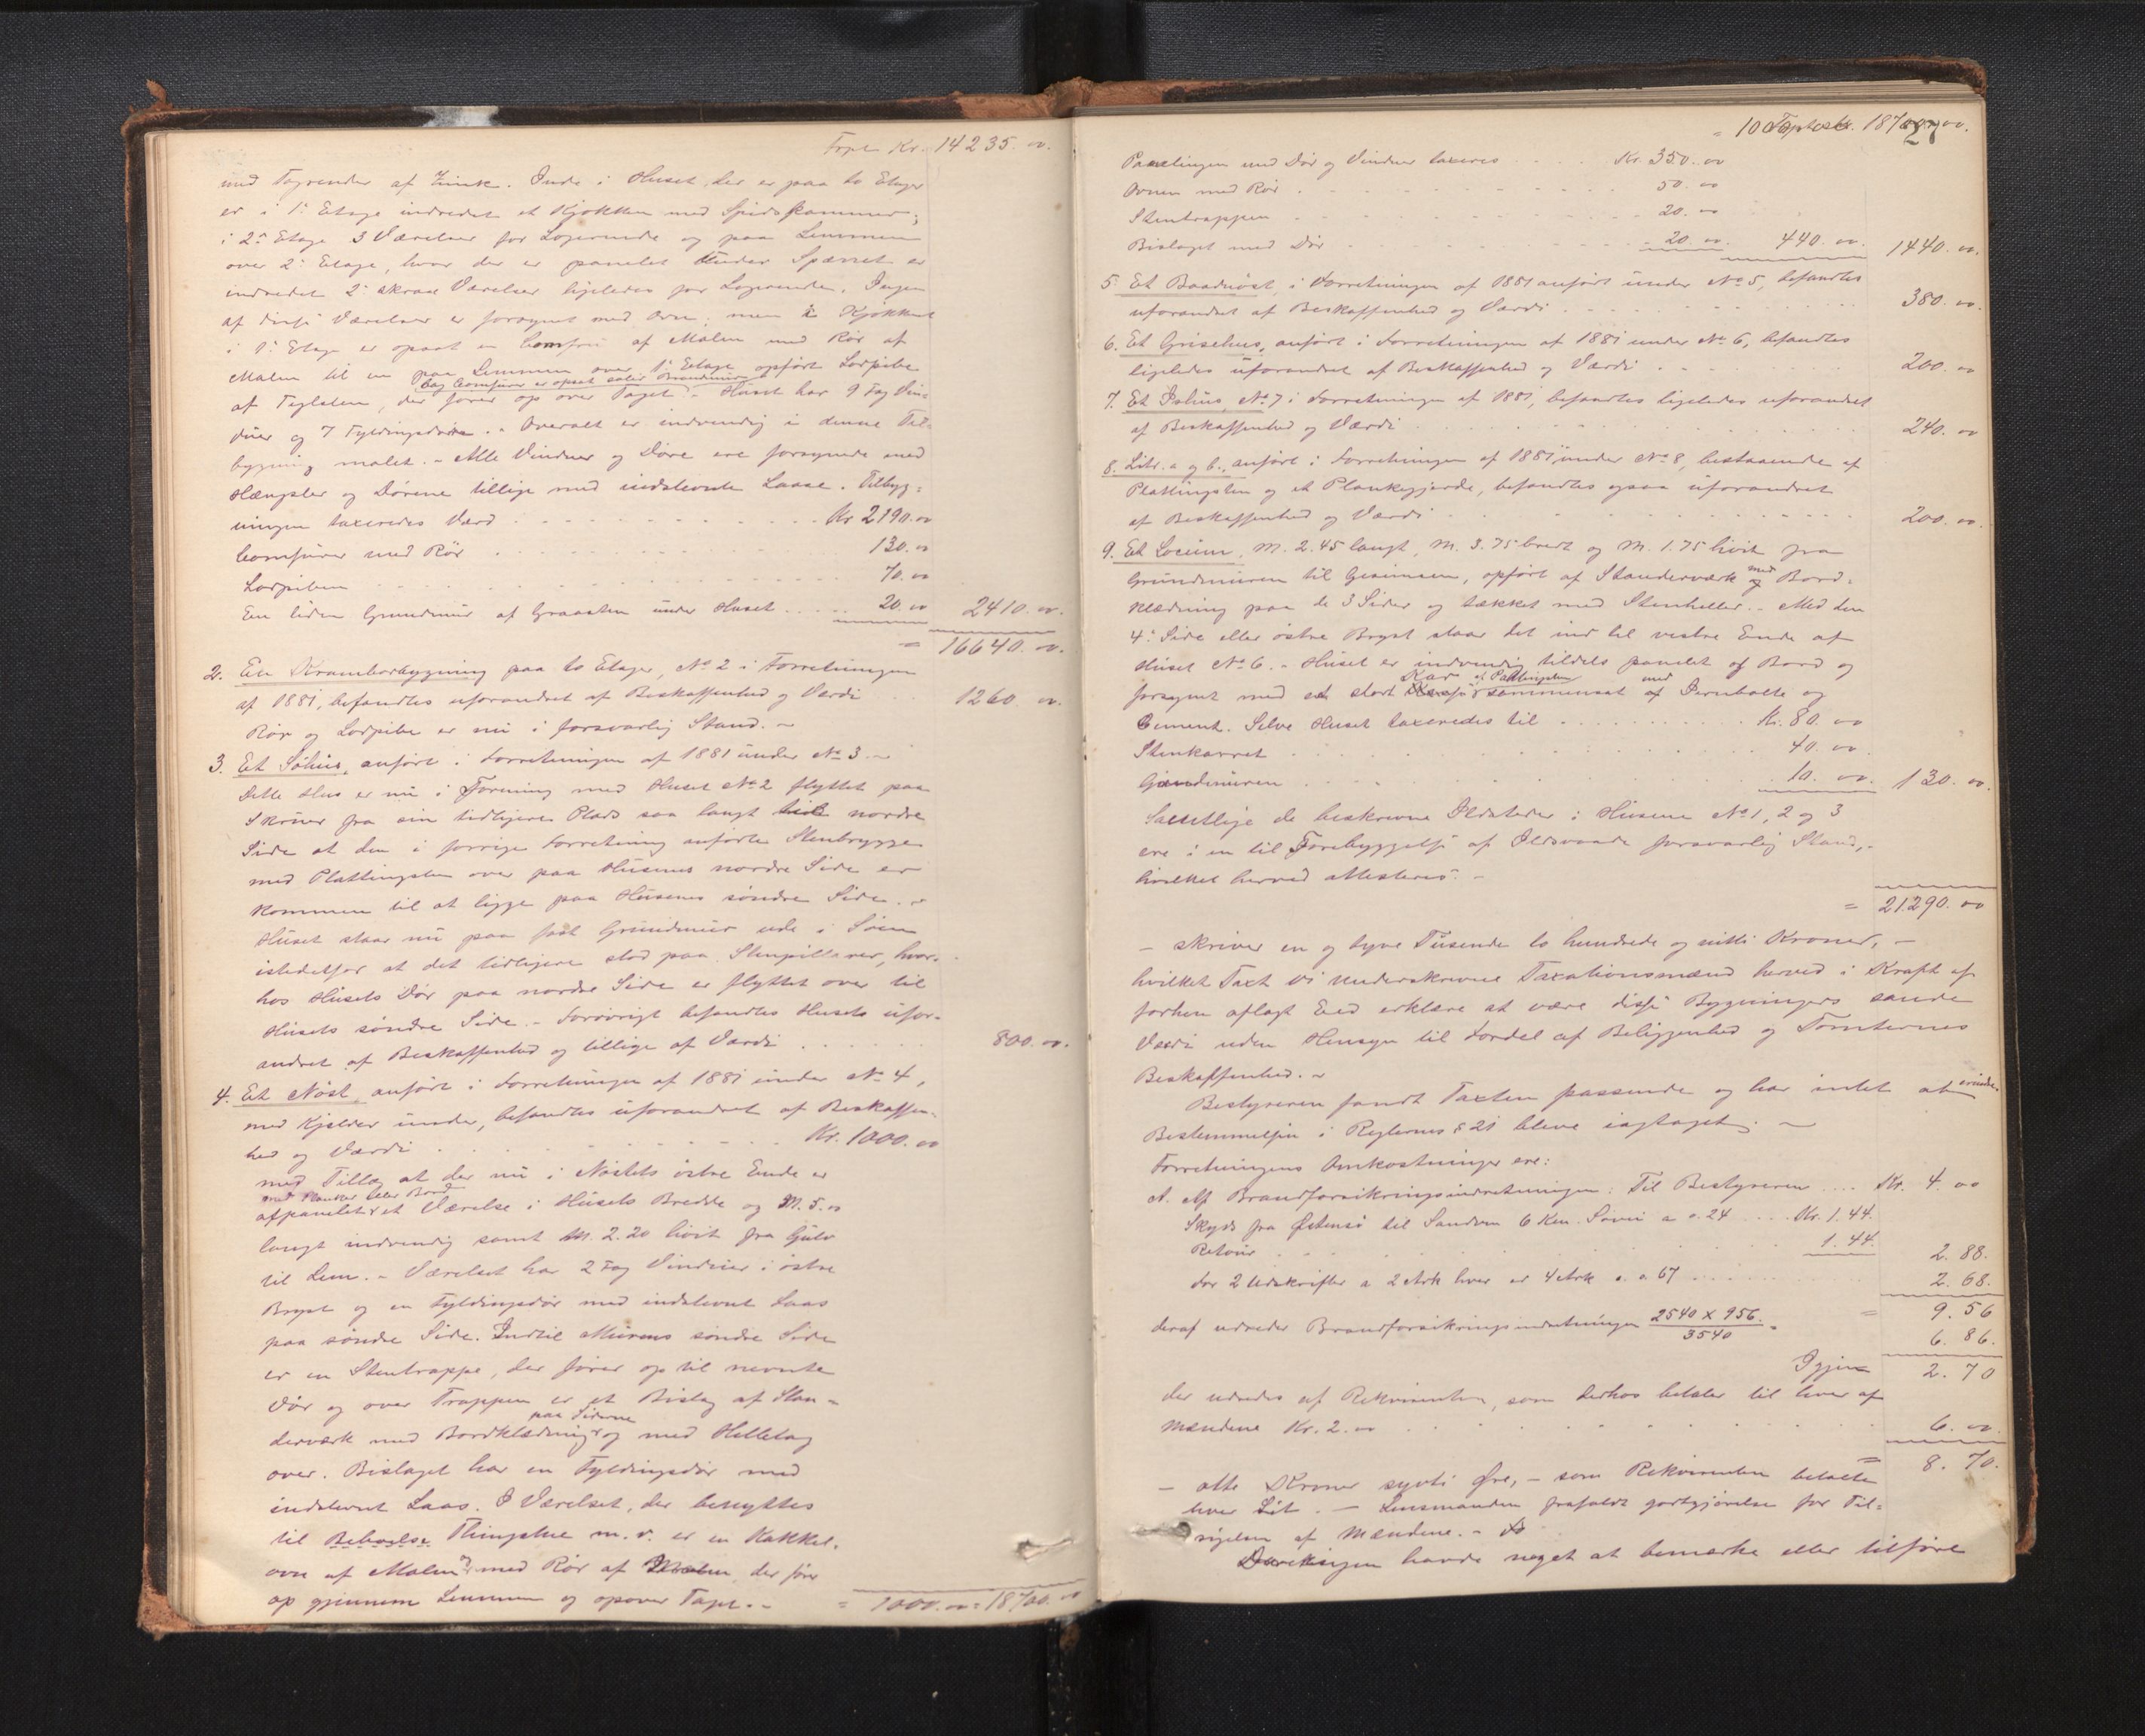 Trpt Kr. 14235.00.
med Tagrender af Zink. Inde i Huset, der er paa to Etager
er i 1ste Etage indredet et Kjøkken med Spiskammer,
i 2den Etage 3 Værelser for Logerende og paa Lemmen
over 2den Etage, hvor der er panelet under Spærret er
indredet 2de skraa Værelser ligeledes for Logerende. Ingen
af disse Værelser er forsynet med Ovn, men i Kjøkkenet
i 1ste Etage er opsat en Comfur af Malm med Rør af
Malm til en paa Lemmen over 1ste Etage opført Lodpibe
bag Comfuren er opsat solid Brandmur
af Teglsten, der fører op over Taget. - Huset har 9 Fag Vin-
duer og 7 Fyldingsdøre. - Overalt er indvendig i denne Til-
bygning malet. - Alle Vinduer og Døre ere forsynede med
Hængsler og Dørene tillige med indstevnte Laase. Tilbyg-
ningen taxeredes Værd . . . Kr 2190.00
Comfuren med Rør . . . 130.00
Lodpiben . . . 70.00
En liden Grundmur af Graasten under Huset . . . 20.00 2410.00.
= 16640.00.
2. En Krambodbygning paa to Etager, No 2 i Forretningen
af 1881, befandtes uforandret af Beskaffenhed og Værdi 1260 00.
Rør og Lodpibe er nu i forsvarlig Stand. -
3. Et Søhus, anført i Forretningen af 1881 under No 3 -
Dette Hus er nu i Forening med Huset No 2 flyttet paa
Skruer fra sin tidligere Plads saa langt til nordre
Side at den i forrige Forretning anførte Stenbrygge
med Plattingsten over paa Husenes nordre Side er
kommen til at ligge paa Husenes søndre Side. -
Huset staar nu paa fast Grundmur ude i Søen
istedetfor at det tidligere stod paa Stenpillarer, hvor-
hos Husets Dør paa nordre Side er flyttet over til
Husets søndre Side. - Forøvrigt befandtes Huset ufor-
andret af Beskaffenhed og tillige af Værdi . . . 800.00.
4. Et Nøst, anført i Forretningen af 1881 under No 4,
med Kjelder under, befandtes uforandret af Beskaffen-
hed og Værdi . . . Kr. 1000.00
med Tillæg at der nu i Nøstets østre Ende er
med Planker eller Bord
afpanelet et Værelse i Husets Bredde og M. 5.00
langt indvendig samt M. 2.20 høit fra Gulv
til Lem. - Værelset har 2 Fag Vinduer i østre
Bryst og en Fyldingsdør med indstevnt Laas
paa søndre Side. Indtil Murens søndre Side
er en Stentrappe, der fører op til nevnte
Dør og over Trappen er et Bislag af Stan-
paa Siderne
derværk med Bordklædning og med Helletag
over. Bislaget har en Fyldingsdør med
indstevnt Laas. I Værelset, der benyttes
til Beboelse Thingstue m. v. er en Kakkel-
ovn af Malm med Rør af Malm der fører
op gjennem Lemmen og opover Taget. -
= 1000.00 = 18700.00
= 1000 Trpt Kr. 18700.00.
27
Panelingen med Dør og Vinduer taxeres . . . Kr. 350.00
Ovnen med Rør . . . 50.00
Stentrappen . . . 20.00
Bislaget med Dør . . . 20.00. 440.00. 1440.00.
5. Et Baadnøst, i Forretningen af 1881 anført under No 5, befandtes
uforandret af Beskaffenhed og Værdi . . . 380.00.
6. Et Grisehus, anført i Forretningen af 1881 under No 6, befandtes
ligeledes uforandret af Beskaffenhed og Værdi . . . 200.00
7. Et Ishus, No 7 i Forretningen af 1881, befandtes ligeledes uforandret
af Beskaffenhed og Værdi . . . 240.00
8. Litr. a og b., anført i Forretningen af 1881 under No 8, bestaaende af
Plattingsten og et Plankegjerde, befandtes ogsaa uforandret
af Beskaffenhed og Værdi . . . 200.00.
9. Et Locum, M. 2.45 langt, M. 3.75 bredt og M. 1.75 høit fra
med
Grundmuren til Gesimsen, opført af Standerværk og Bord-
klædning paa de 3 Sider og tækket med Stenheller. - Med den
4de Side eller østre Bryst staar det ind til vestre Ende af
Huset No 6. - Huset er indvendig tildels panelet af Bord og
Kar af Plattingsten med
forsynet med et stort sammensat af Jernbolte og
Cement. Selve Huset taxeredes til . . . Kr. 80.00
Stenkarret . . . 40.00.
Grundmuren . . . 10.00. 130.00.
Samtlige de beskrevne Ildsteder i Husene No 1, 2 og 3
ere i en til Forebyggelse af Ildsvaade forsvarlig Stand, -
hvilket herved attesteres. -
= 21290.00
- skriver en og tyve Tusende to hundrede og nitti Kroner, -
hvilket Taxt vi underskrevne Taxationsmænd herved i Kraft af
forhen aflagt Eed erklære at være disse Bygningers sande
Værdi uden Hensyn til Fordel af Beliggenhed og Tomternes
Beskaffenhed. -
Bestyreren fandt Taxten passende og har intet at erindre.
Bestemmelsen i Reglernes § 21 bleve iagtaget. -
Forretningens Omkostninger ere:
A. Af Brandforsikringsindretningen: Til Bestyreren . . . Kr. 4.00
Skyds fra Østensø til Sandven 6 Km. Søvei a 0.24 . . . Kr. 1.44.
Retour . . . 1.44. 2.88.
For 2 Udskrifter a 2 Ark hver er 4 Ark a 0.67 . . . 2.68.
= 9.56
deraf udreder Brandforsikringsindretningen 2540 x 956 / 3540 = 6.86.
Igjen 2.70
der udredes af Rekvirenten, som derhos betaler til hver af
Mændene Kr. 2.00 . . . 6.00.
= 8.70.
- otte Kroner sytti Øre, - som Rekvirenten betalte
hver Sit. - Lensmanden frafaldt godtgjørelse for Til-
sigelsen af Mændene. -
Da ingen havde noget at bemærke eller tilføre